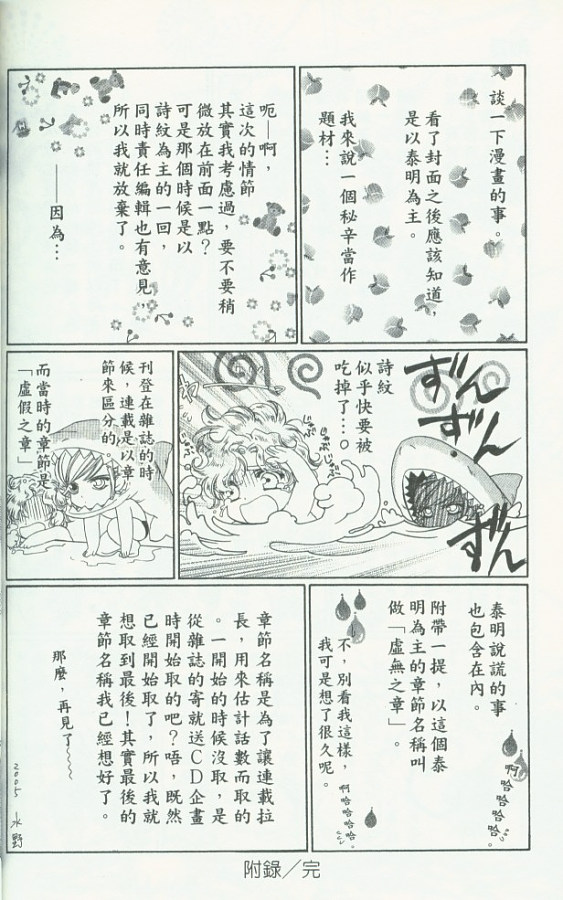 談一下漫畫的事。
看了封面之後應該知道，
是以泰明為主。
我來說一個秘辛當作
題材…
呃—啊，
這次的情節
其實我考慮過，要不要稍
微放在前面一點？
可是那個時候是以
詩紋為主的一回，
同時責任編輯也有意見，
所以我就放棄了。
——因為…
ずんずん
ずん
詩紋
似乎快要被
吃掉了…。
じゅぶ
じゅぶ
じゅぶ
刊登在雜誌的時
候，連載是以章
節來區分的。
而當時的章節是
「虛假之章」
泰明說謊的事
也包含在內。
附帶一提，以這個泰
明為主的章節名稱叫
做「虛無之章」。
啊哈哈哈哈。
不，別看我這樣，
我可是想了很久呢。
啊哈哈哈哈。
章節名稱是為了讓連載拉
長，用來估計話數而取的
。一開始的時候沒取，是
從雜誌的寄就送CD企畫
時開始取的吧？唔，既然
已經開始取了，所以我就
想取到最後！其實最後的
章節名稱我已經想好了。
那麼，再見了～～～
2005 水野
附錄／完